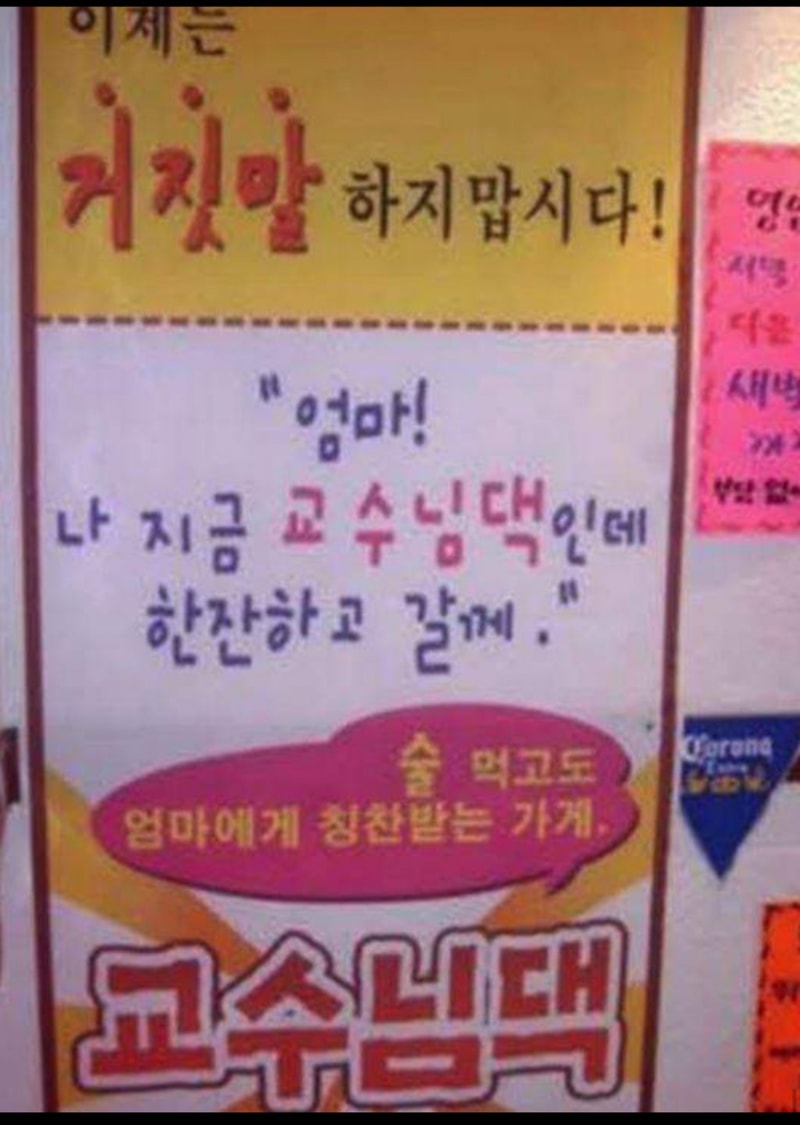 이제는
거짓말 하지맙시다!
"엄마!
나 지금 교수님댁인데
한잔하고 갈께."
술 먹고도
엄마에게 칭찬받는 가게.
교수님댁
다음
새벽
Corona
Extra